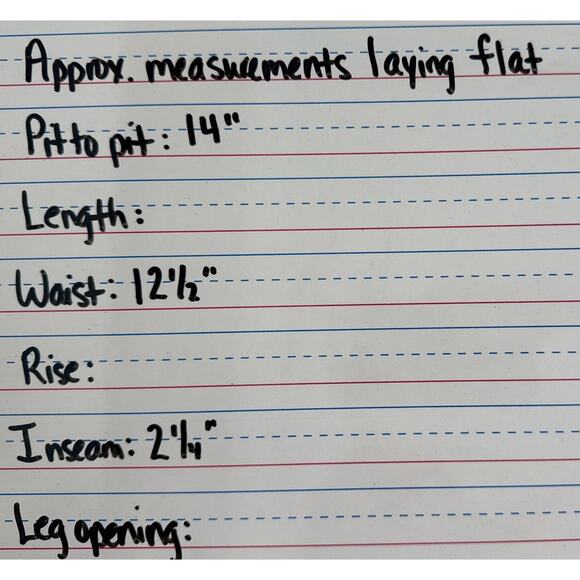 Approx. measurements laying flat
Pit to pit: 14"
Length:
Waist: 12 1/2"
Rise:
Inseam: 2 1/4"
Leg opening: